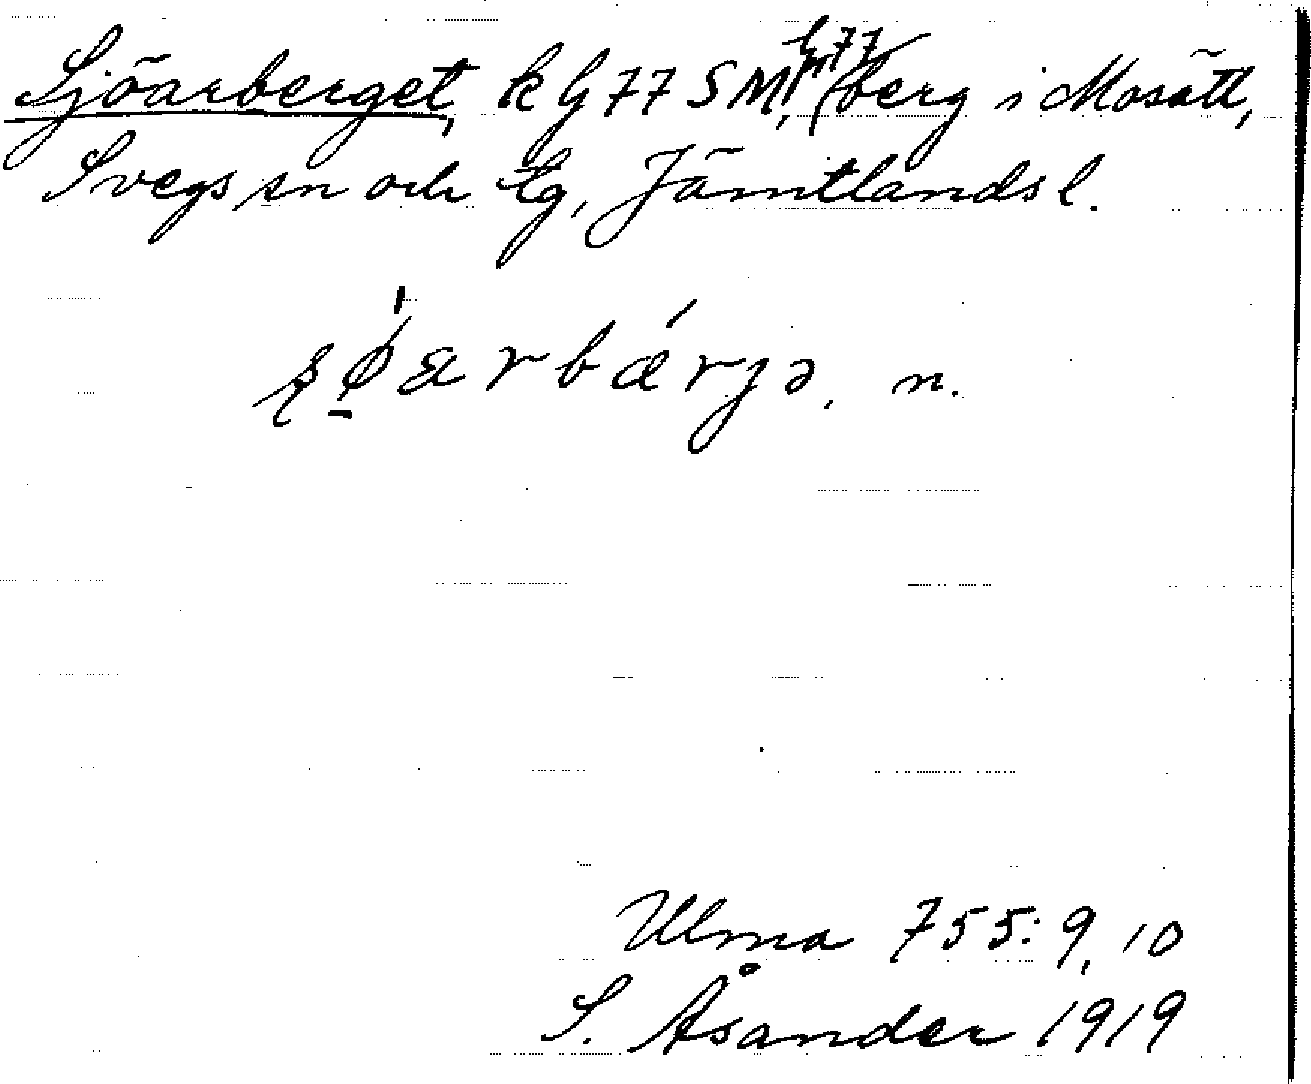 Sjöarberget, k G 77 SM, berg i Mosätt,
Svegs sn och tg, Jämtlands l.
n.
Ulma 755: 9, 10
S. Åsander 1919